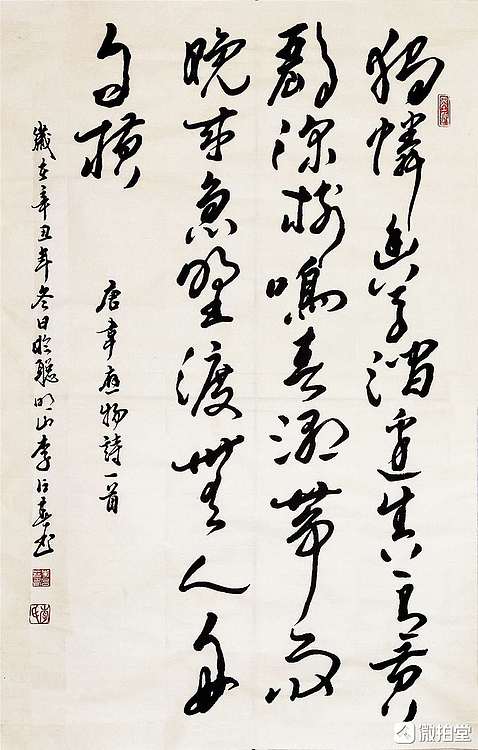 獨憐幽草澗邊生上有黃
鸝深樹鳴春潮帶雨
晚來急野渡無人舟
自橫
唐韋應物詩一首
歲在辛丑年冬日於聰明山李
微拍堂